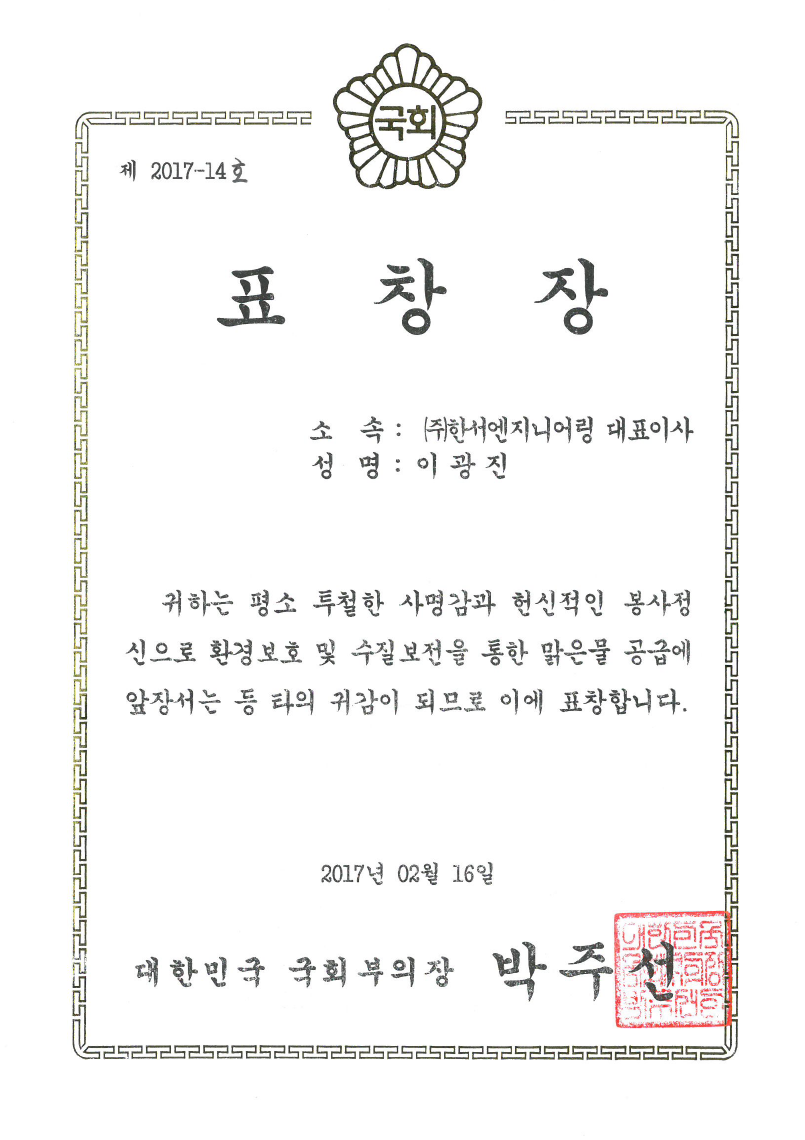 국회
제 2017-14호
표 창 장
소 속 : (주)한서엔지니어링 대표이사
성 명 : 이 광 진
귀하는 평소 투철한 사명감과 헌신적인 봉사정
신으로 환경보호 및 수질보전을 통한 맑은물 공급에
앞장서는 등 타의 귀감이 되므로 이에 표창합니다.
2017년 02월 16일
대한민국 국회부의장 박주선